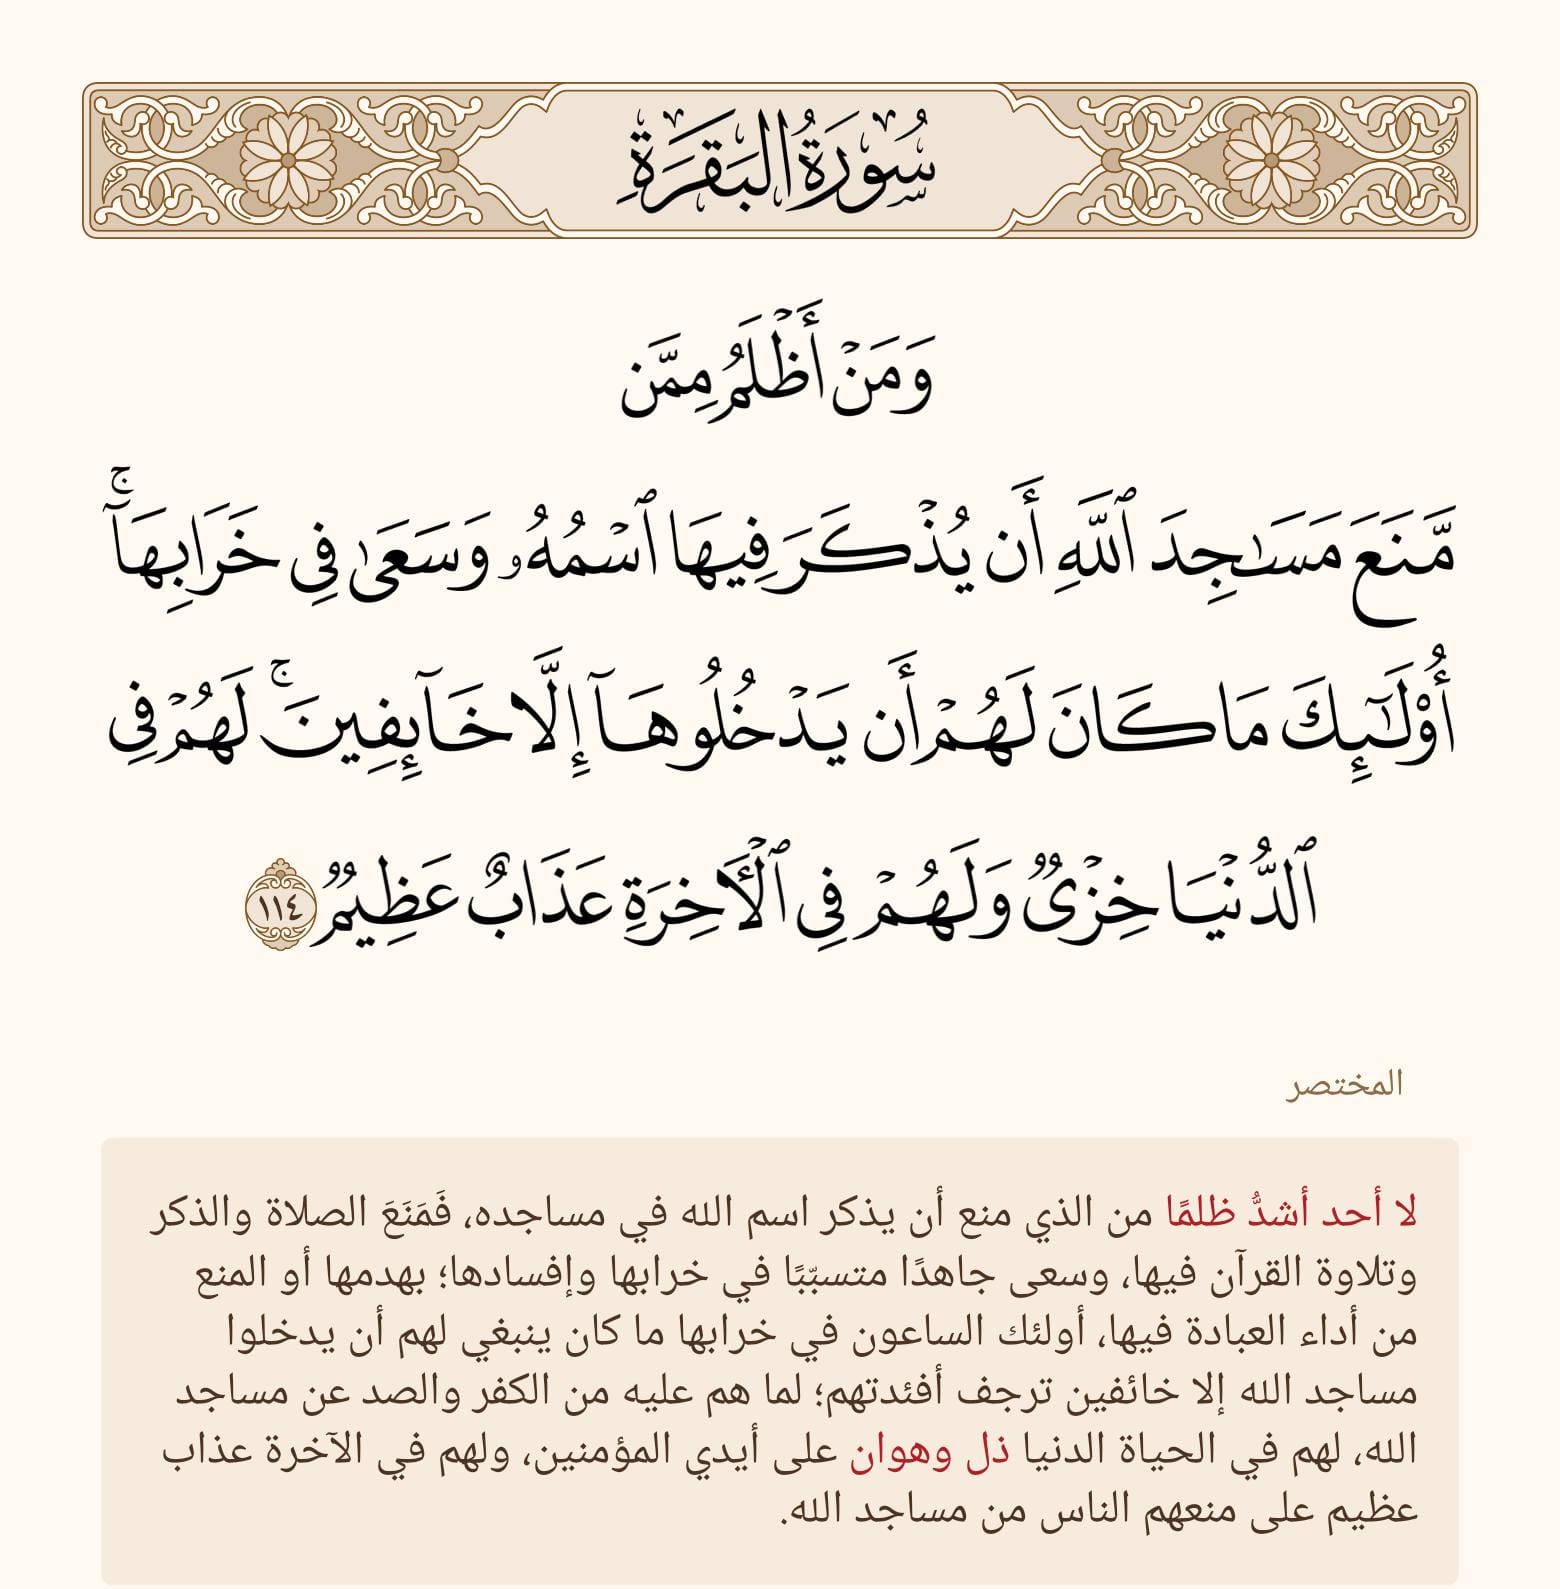 سُورَةُ البَقَرَةِ
وَمَنْ أَظْلَمُ مِمَّن
مَّنَعَ مَسَٰجِدَ ٱللَّهِ أَن يُذْكَرَ فِيهَا ٱسْمُهُۥ وَسَعَىٰ فِى خَرَابِهَآۚ
أُوْلَٰٓئِكَ مَا كَانَ لَهُمْ أَن يَدْخُلُوهَآ إِلَّا خَآئِفِينَۚ لَهُمْ فِى
ٱلدُّنْيَا خِزْىٌ وَلَهُمْ فِى ٱلْأٓخِرَةِ عَذَابٌ عَظِيمٌ ١١٤
المختصر
لا أحد أشدُّ ظلمًا من الذي منع أن يذكر اسم الله في مساجده، فَمَنَعَ الصلاة والذكر
وتلاوة القرآن فيها، وسعى جاهدًا متسبّبًا في خرابها وإفسادها؛ بهدمها أو المنع
من أداء العبادة فيها، أولئك الساعون في خرابها ما كان ينبغي لهم أن يدخلوا
مساجد الله إلا خائفين ترجف أفئدتهم؛ لما هم عليه من الكفر والصد عن مساجد
الله، لهم في الحياة الدنيا ذل وهوان على أيدي المؤمنين، ولهم في الآخرة عذاب
عظيم على منعهم الناس من مساجد الله.